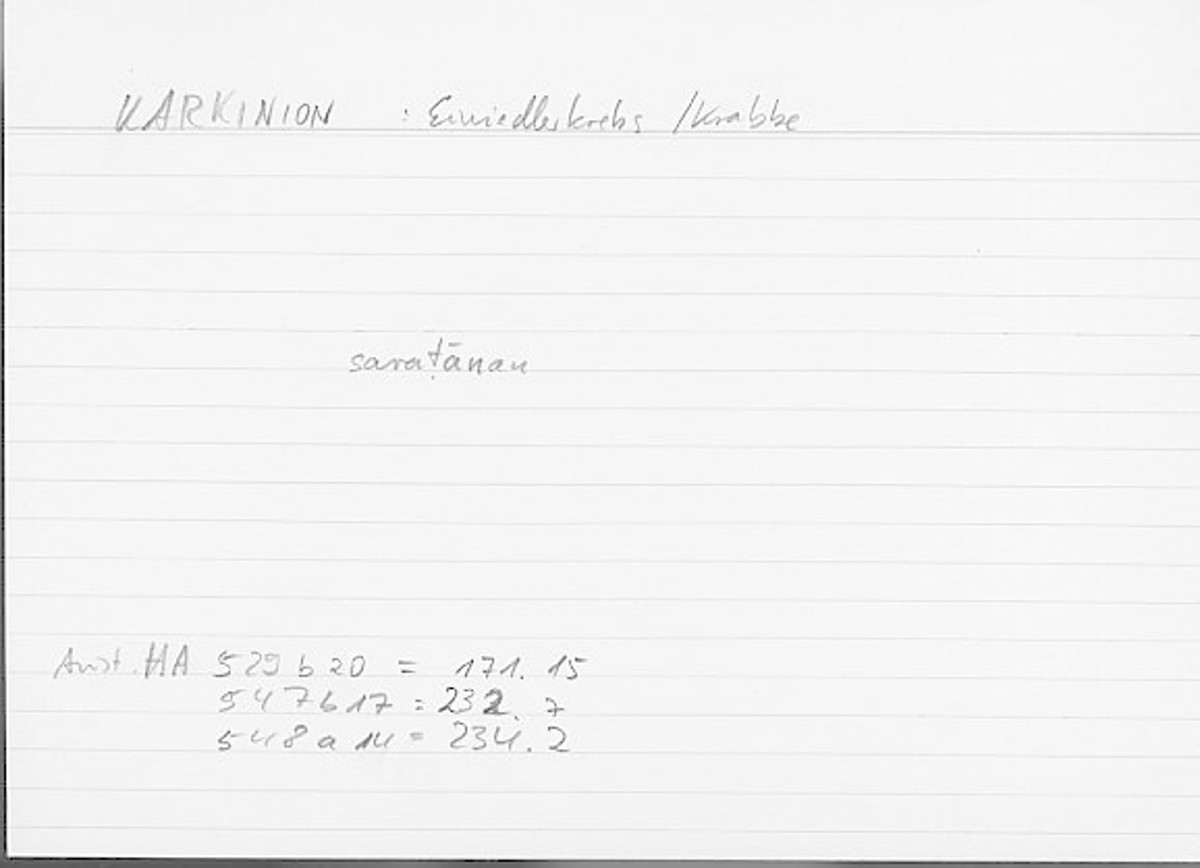 KARKINION : Einsiedlerkrebs /Krabbe
saraṭānan
Arist. HA 529 b 20 = 171. 15
547 b 17 = 232. 7
548 a 14 = 234. 2